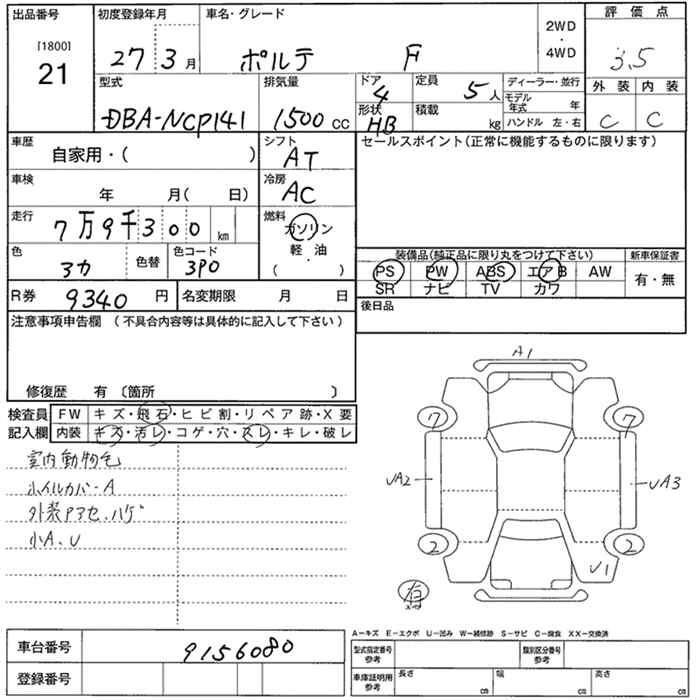 出品番号
[1800]
21
初度登録年月
27 3 月
車名・グレード
ポルテ F
2WD
・
4WD
評価点
3.5
型式
DBA-NCP141
排気量
1500 CC
ドア
4
形状
HB
定員
5 人
積載
kg
ディーラー・並行
モデル年式 年
ハンドル 左・右
外装 内装
C C
車歴
自家用・( )
シフト
AT
セールスポイント(正常に機能するものに限ります)
車検
年 月( 日)
冷房
AC
走行
7万9千300 km
燃料
ガソリン
軽・油
( ・ )
色
シカ
色替
色コード
3P0
装備品(純正品に限り丸をつけて下さい)
PS PW ABS エアB AW
SR ナビ TV カワ
新車保証書
有・無
R券 9340 円
名変期限 月 日
後日品
注意事項申告欄 (不具合内容等は具体的に記入して下さい)
修復歴 有 〔箇所 〕
検査員記入欄
FW キズ・飛石・ヒビ割・リペア跡・X要
内装 キズ・汚レ・コゲ・穴・スレ・キレ・破レ
室内動物毛
ホイルカバーA
外装アクセ、ハゲ
小A、U
A1
7 7
UA2 UA3
2 2
U1
A−キズ E−エクボ U−凹み W−補修跡 S−サビ C−腐食 XX−交換済
車台番号 9156080
登録番号
型式指定番号 参考
類別区分番号 参考
車庫証明用 参考
長さ cm
幅 cm
高さ cm